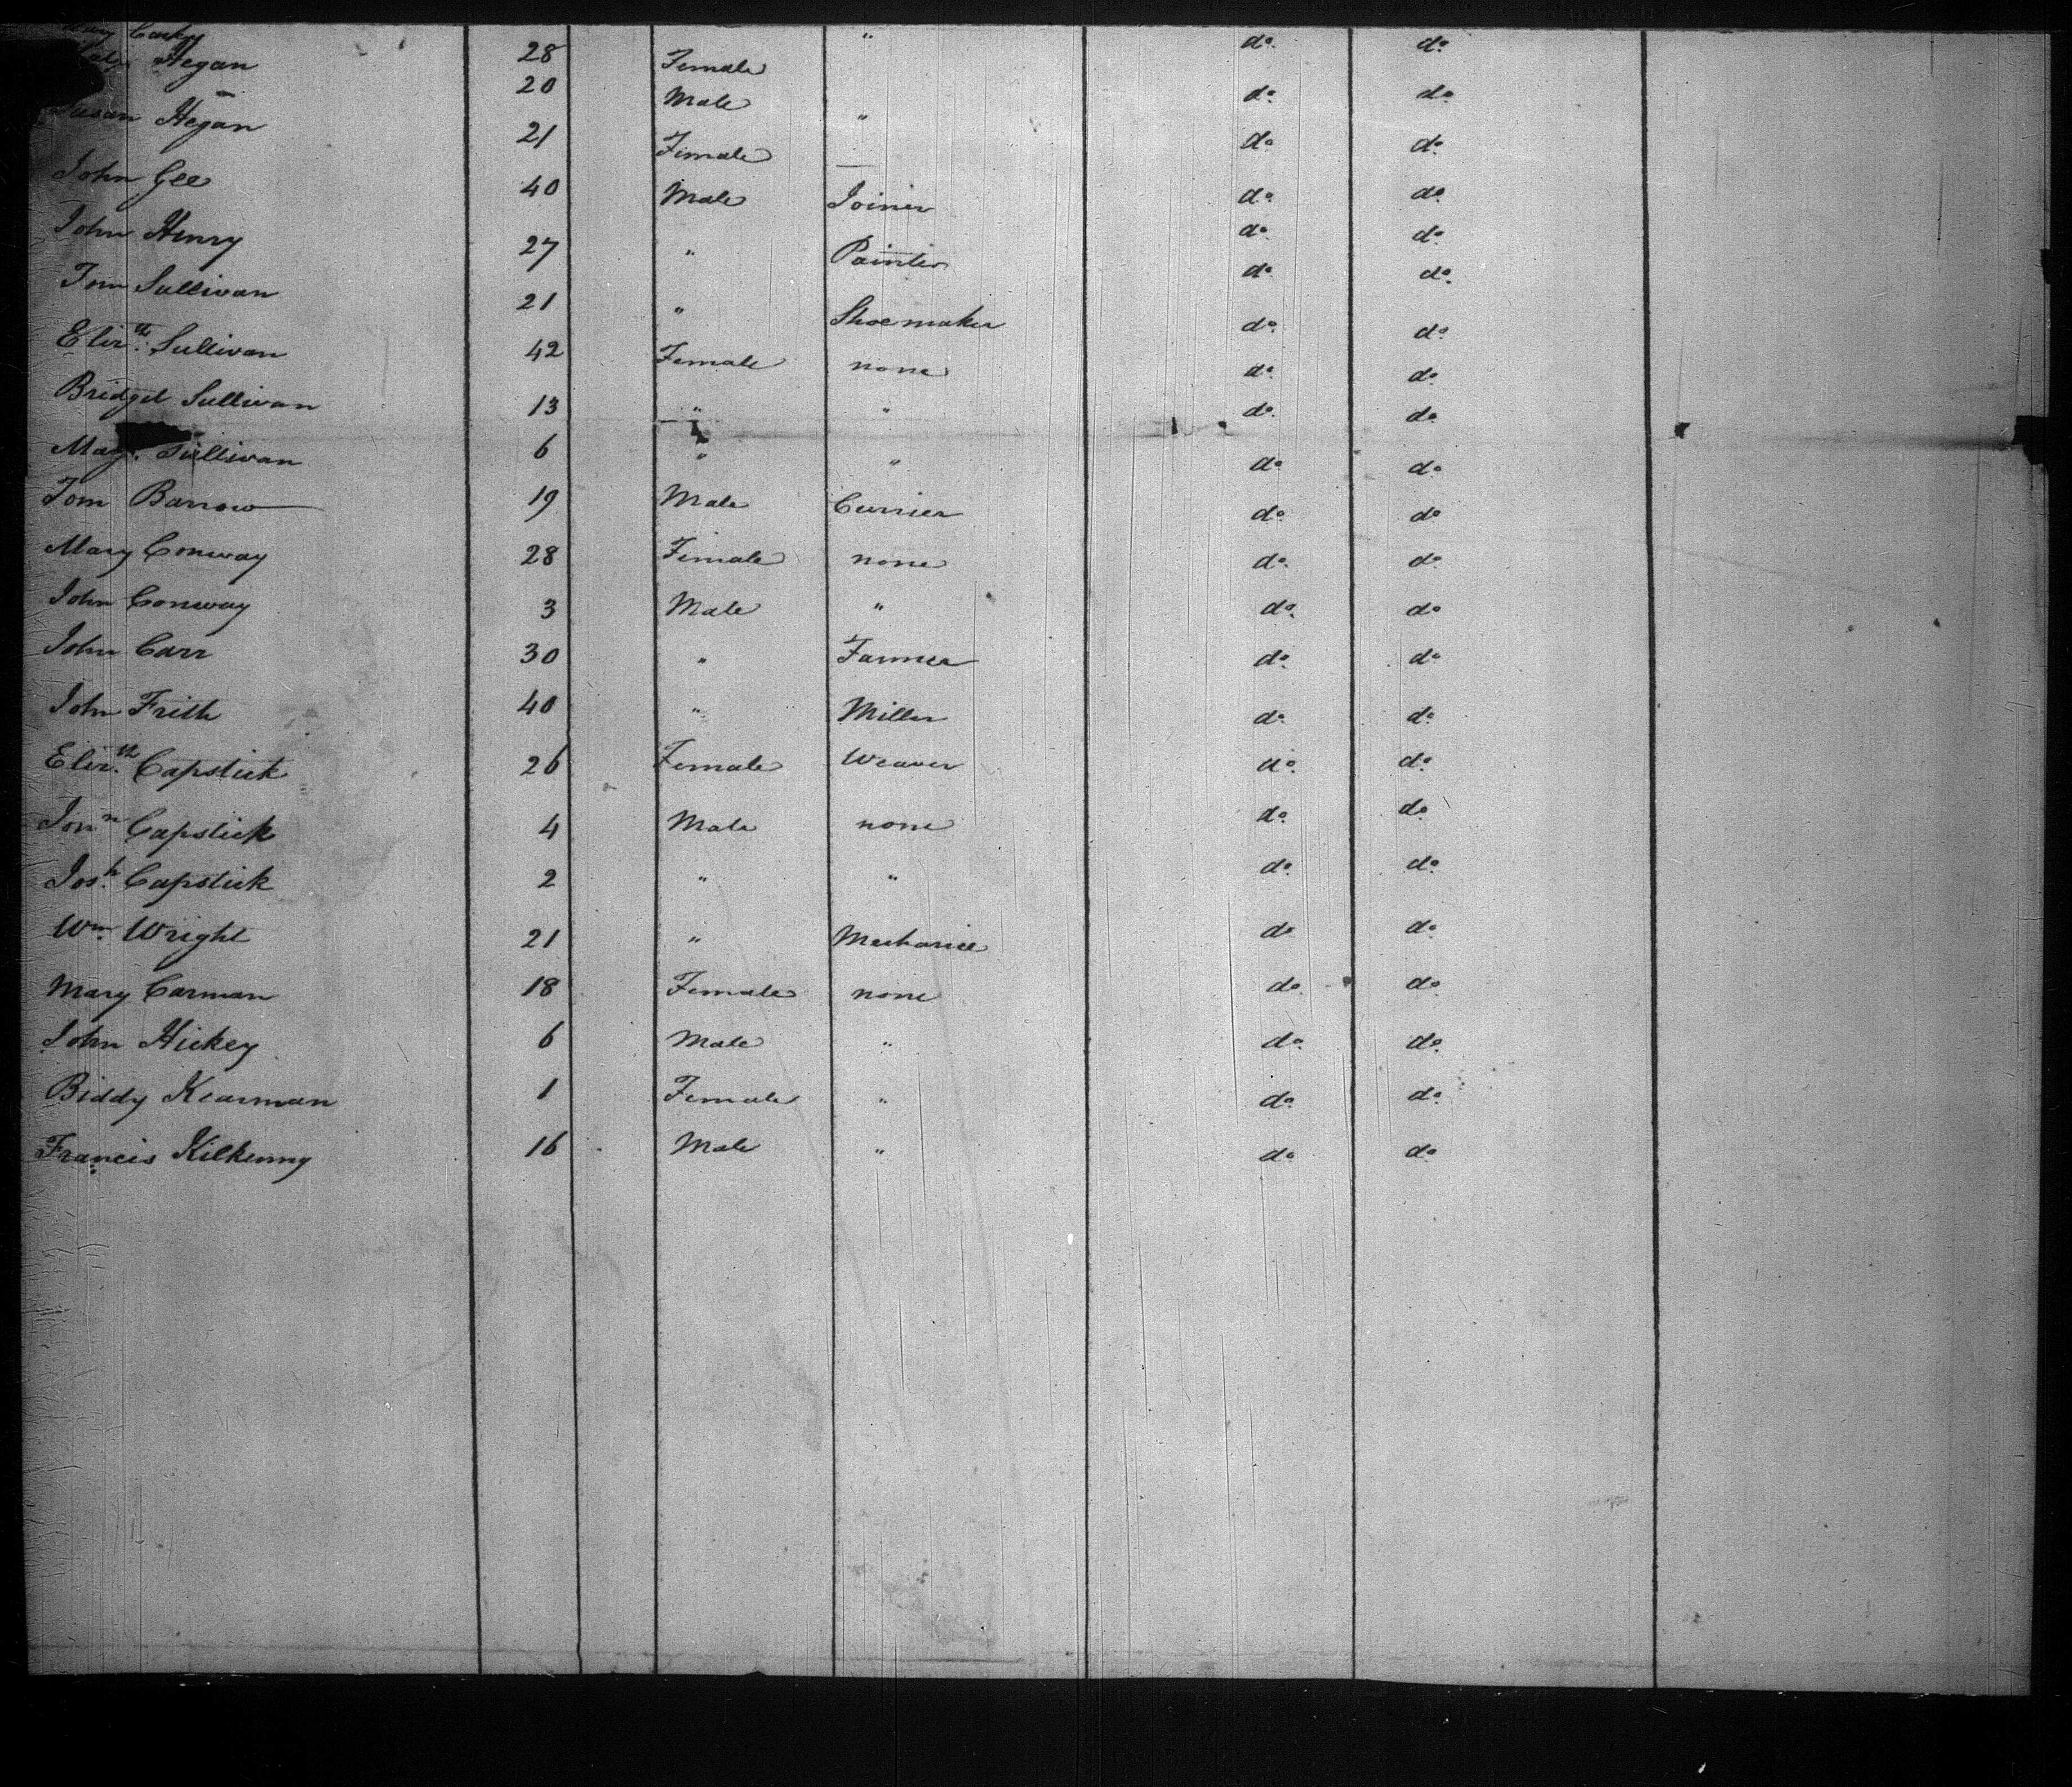 28 Female " do. do.
Hegan 20 Male " do. do.
Susan Hegan 21 Female — do. do.
John Gee 40 Male Joiner do. do.
John Henry 27 " Painter do. do.
Tom Sullivan 21 " Shoemaker do. do.
Elizth. Sullivan 42 Female none do. do.
Bridget Sullivan 13 " " do. do.
Mary. Sullivan 6 " " do. do.
Tom Barrow 19 Male Currier do. do.
Mary Conway 28 Female none do. do.
John Conway 3 Male " do. do.
John Carr 30 " Farmer do. do.
John Frith 40 " Miller do. do.
Elizth. Capstick 26 Female Weaver do. do.
Jonn Capstick 4 Male none do. do.
Josh. Capstick 2 " " do. do.
Wm. Wright 21 " Mechanic do. do.
Mary Carman 18 Female none do. do.
John Hickey 6 Male " do. do.
Biddy Kearman 1 Female " do. do.
Francis Kilkenny 16 Male " do. do.